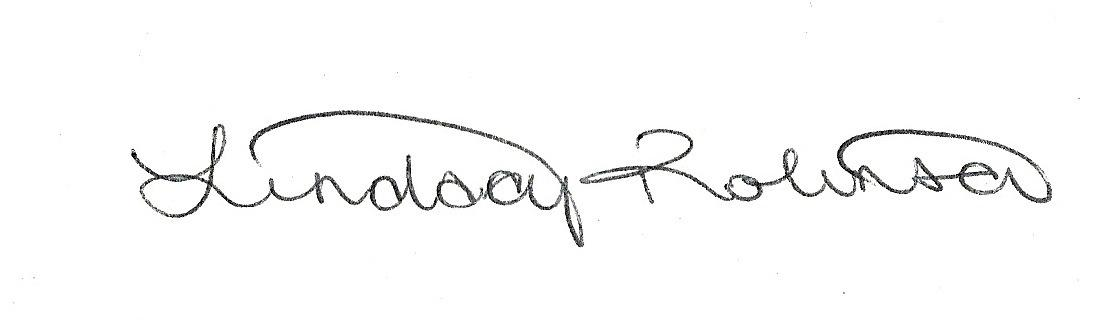 Lindsay Robinson